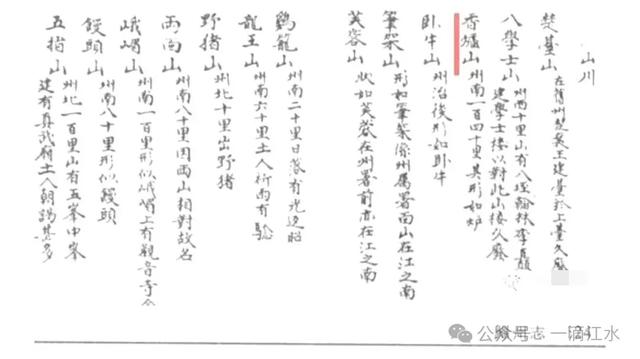 山川
楚臺山 在舊州楚襄王建臺於上臺久廢
八學士山 州西十里山有八垤翰林李
建學士樓以對此山樓久廢
香爐山 州南一百四十里其形如炉
卧牛山 州治後形如卧牛
筆架山 形如筆架係州屬署面山在江之南
芙蓉山 狀如芙蓉在州署前亦在江之南
鷄籠山 州南二十里日落有光返照
龍王山 州南六十里土人祈雨有驗
野猪山 州北十里出野猪
两面山 州南八十里因两山相對故名
峨嵋山 州南一百里形似峨嵋上有觀音寺今
饅頭山 州南八十里形似饅頭
五指山 州北一百里山有五峯中峯
建有真武廟土人朝謁甚多
公众号 一滴江水